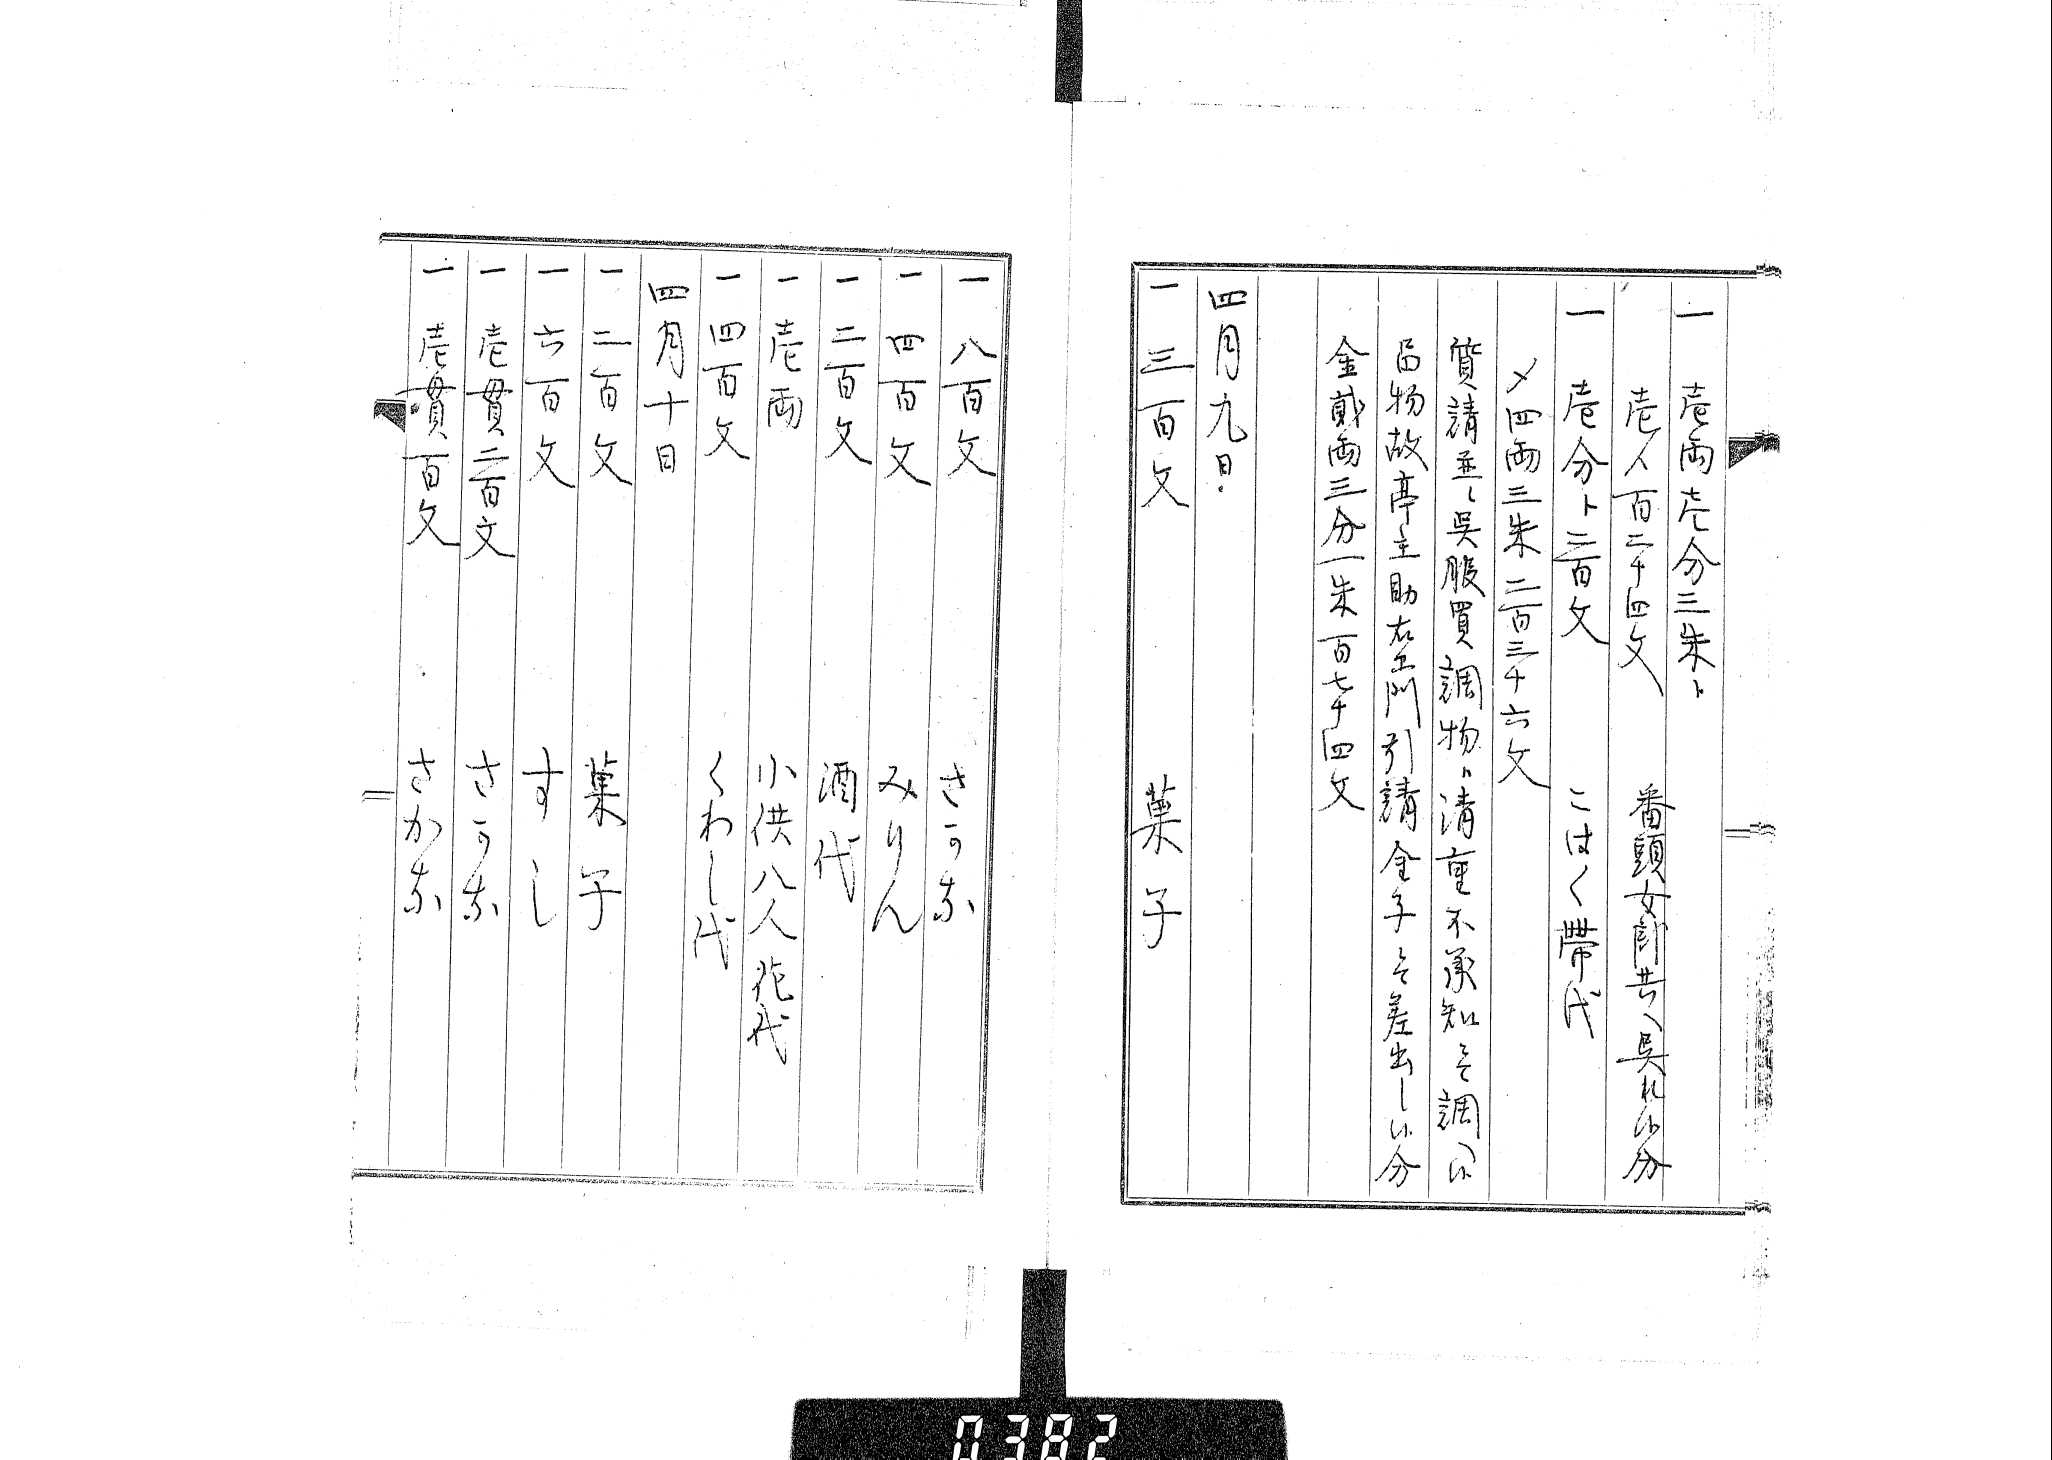 一 壱両壱分三朱ト
壱人百二十四文 番頭女郎共へ呉れ候分
一 壱分ト三百文 こはく帯代
〆四両三朱二百三十六文
質請並ニ呉服買調物ハ清重不承知ニ而調へ候
品物故亭主助右エ門引請金子ニ而差出し候分
金貮両三分一朱百七十四文
四月九日
一 三百文 菓子
一 八百文 さかな
一 四百文 みりん
一 二百文 酒代
一 壱両 小供八人花代
一 四百文 くわし代
四月十日
一 二百文 菓子
一 六百文 すし
一 壱貫二百文 さかな
一 壱貫百文 さかな
0382